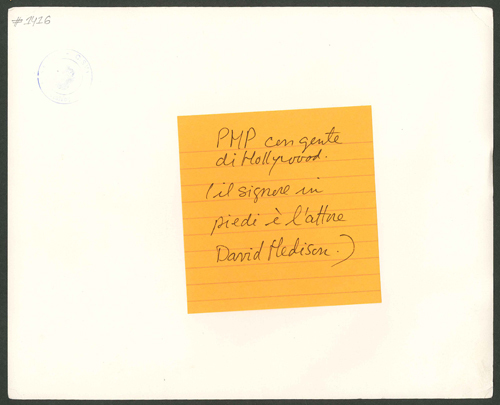 #1426
PMP con gente
di Hollywood.
(il signore in
piedi è l'attore
David Hedison.)